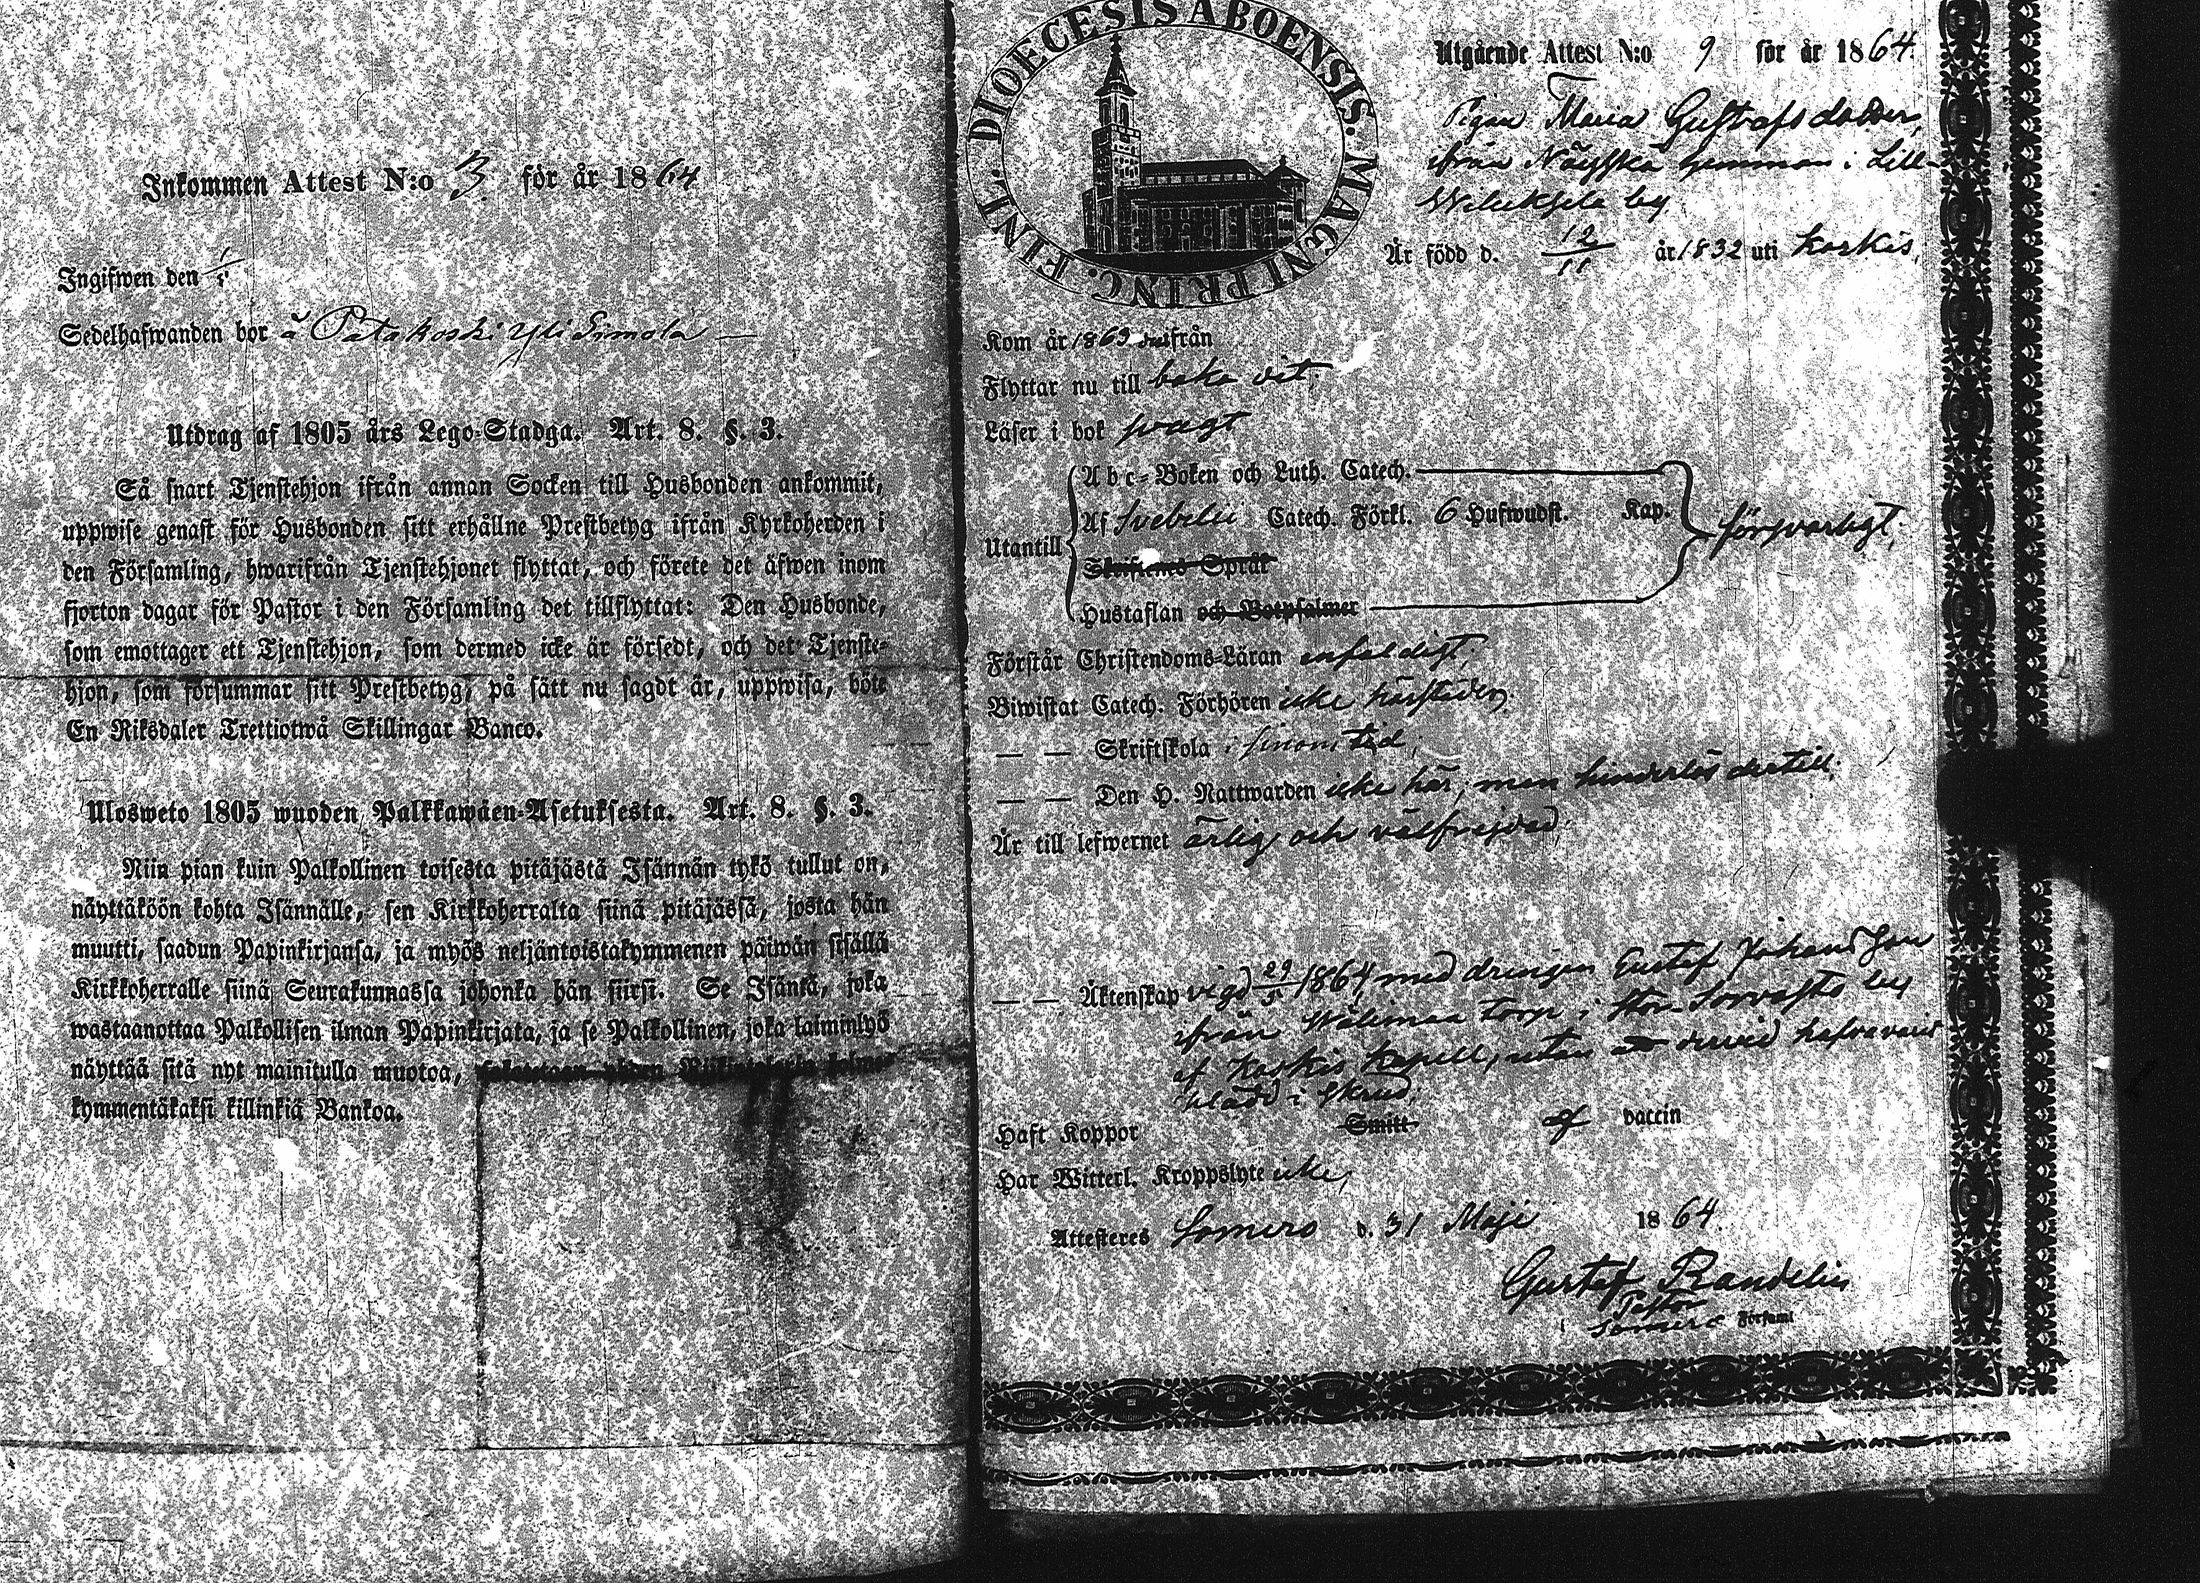 Inkommen Attest N:o 3. för år 1864
Ingifwen den
Sedelhafwanden bor å Patakoski Yli Simola
Utdrag af 1805 års Lego-Stadga. Art. 8. §. 3.
Så snart Tjenstehjon ifrån annan Socken till Husbonden ankommit,
uppwise genast för Husbonden sitt erhållne Prestbetyg ifrån Kyrkoherden i
den Församling, hwarifrån Tjenstehjonet flyttat, och förete det äfwen inom
fjorton dagar för Pastor i den Församling det tillflyttat: Den Husbonde,
som emottager ett Tjenstehjon, som dermed icke är försedt, och det Tjenste-
hjon, som försummar sitt Prestbetyg, på sätt nu sagdt är, uppwisa, böte
En Riksdaler Trettiotwå Skillingar Banco.
Ulosweto 1805 wuoden Palkkawäen-Asetuksesta. Art. 8. §. 3.
Niin pian kuin Palkollinen toisesta pitäjästä Isännän tykö tullut on,
näyttäköön kohta Isännälle, sen Kirkkoherralta siinä pitäjässä, josta hän
muutti, saadun Papinkirjansa, ja myös neljäntoistakymmenen päiwän sisällä
Kirkkoherralle siinä Seurakunnassa johonka hän siirsi. Se Isäntä, joka
wastaanottaa Palkollisen ilman Papinkirjata, ja se Palkollinen, joka laiminlyö
näyttää sitä nyt mainitulla muotoa,
kymmentäkaksi killinkiä Bankoa.
FINL. DIOECESIS ABOENSIS. MAGNI PRINC.
Utgående Attest N:o 9 för år 1864.
Pigan Maria Gustafsdotter,
ifrån Näyskä hemman i Lill-
by
Är född d. 12/11 år 1832 uti Koskis,
Kom år 1863 ifrån
Flyttar nu till baka dit,
Läser i bok svagt
Utantill
Abc-Boken och Luth. Catech.
Af Svebelii Catech. Förkl. 6 Hufwudst. Kap.
försvarligt,
Skriftenes Språk
Hustaflan och Botpsalmer
Förstår Christendoms-Läran enfaldigt,
Biwistat Catech. Förhören icke härstädes,
— — Skriftskola i sinom tid,
— — Den H. Nattwarden icke här, men hinderlös dertill,
Är till lefwernet ärlig och välfrejdad,
— — Äktenskap vigd 29/5 1864 med drengen Gustaf Johansson
ifrån torp i by
af Koskis kapell, utan dervid hafva varit
klädd i skrud,
Haft Koppor Smitt af vaccin
Har Witterl. Kroppslyte icke,
Attesteres Somero d. 31 Maji 1864
Gustaf Randelin
Pastor
i Somero Församl